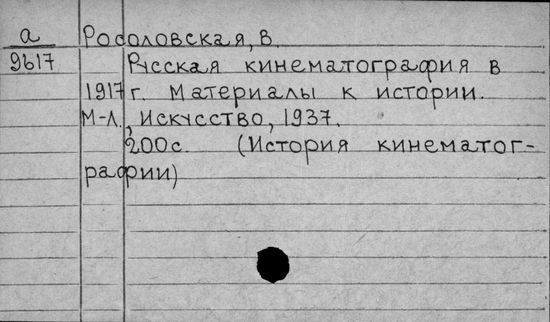 а Росоловская, В.
9617 Русская кинематография в
1917 г. Материалы к истории.
М-Л., Искусство, 1937.
200с. (История кинематог-
рафии)